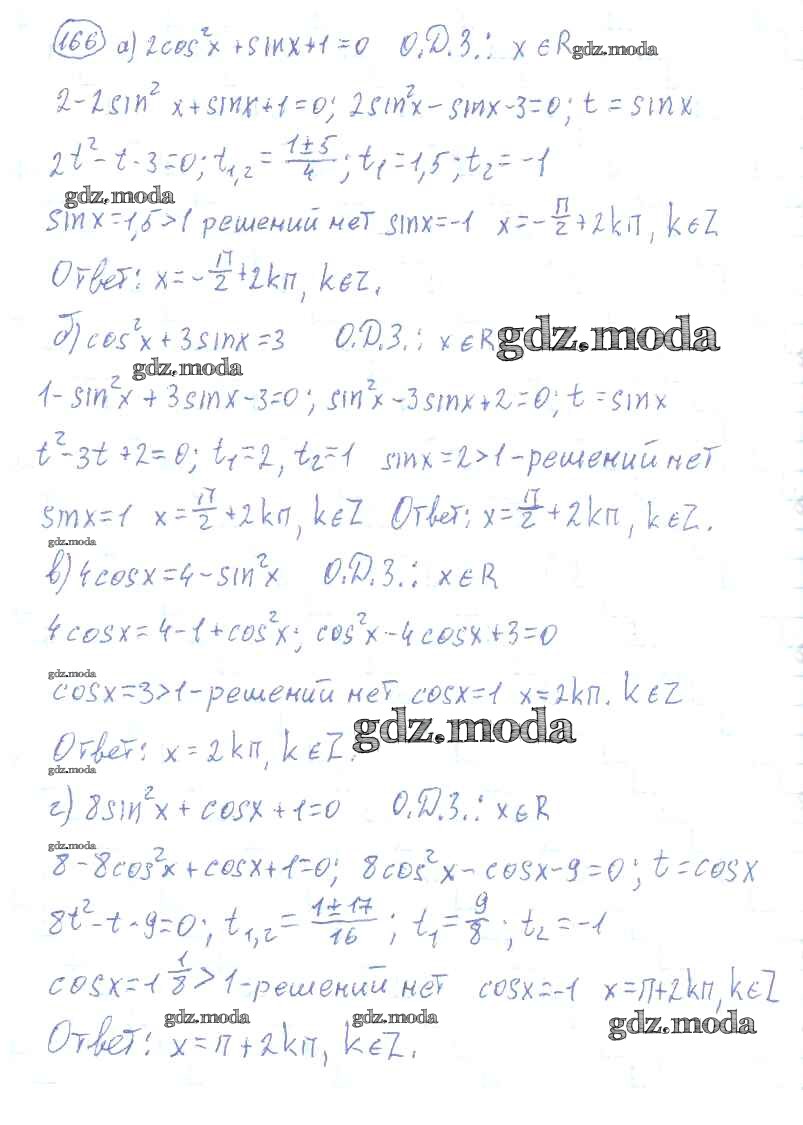 166 а) 2cos²x + sinx + 1 = 0 О.Д.З.: x ∈ R gdz.moda
2 - 2sin² x + sinx + 1 = 0; 2sin²x - sinx - 3 = 0; t = sinx
2t² - t - 3 = 0; t₁,₂ = (1±5)/4; t₁ = 1,5; t₂ = -1
gdz.moda
sinx = 1,5 > 1 решений нет sinx = -1 x = -π/2 + 2kπ, k ∈ Z
Ответ: x = -π/2 + 2kπ, k ∈ Z.
б) cos²x + 3sinx = 3 О.Д.З.: x ∈ R gdz.moda
gdz.moda
1 - sin²x + 3sinx - 3 = 0; sin²x - 3sinx + 2 = 0; t = sinx
t² - 3t + 2 = 0; t₁ = 2, t₂ = 1 sinx = 2 > 1 - решений нет
sinx = 1 x = π/2 + 2kπ, k ∈ Z Ответ: x = π/2 + 2kπ, k ∈ Z.
gdz.moda
в) 4cosx = 4 - sin²x О.Д.З.: x ∈ R
4cosx = 4 - 1 + cos²x; cos²x - 4cosx + 3 = 0
gdz.moda
cosx = 3 > 1 - решений нет cosx = 1 x = 2kπ. k ∈ Z
Ответ: x = 2kπ, k ∈ Z. gdz.moda
gdz.moda
г) 8sin²x + cosx + 1 = 0 О.Д.З.: x ∈ R
gdz.moda
8 - 8cos²x + cosx + 1 = 0; 8cos²x - cosx - 9 = 0; t = cosx
8t² - t - 9 = 0; t₁,₂ = (1±17)/16; t₁ = 9/8; t₂ = -1
cosx = 1 1/8 > 1 - решений нет cosx = -1 x = π + 2kπ, k ∈ Z
gdz.moda gdz.moda gdz.moda
Ответ: x = π + 2kπ, k ∈ Z.